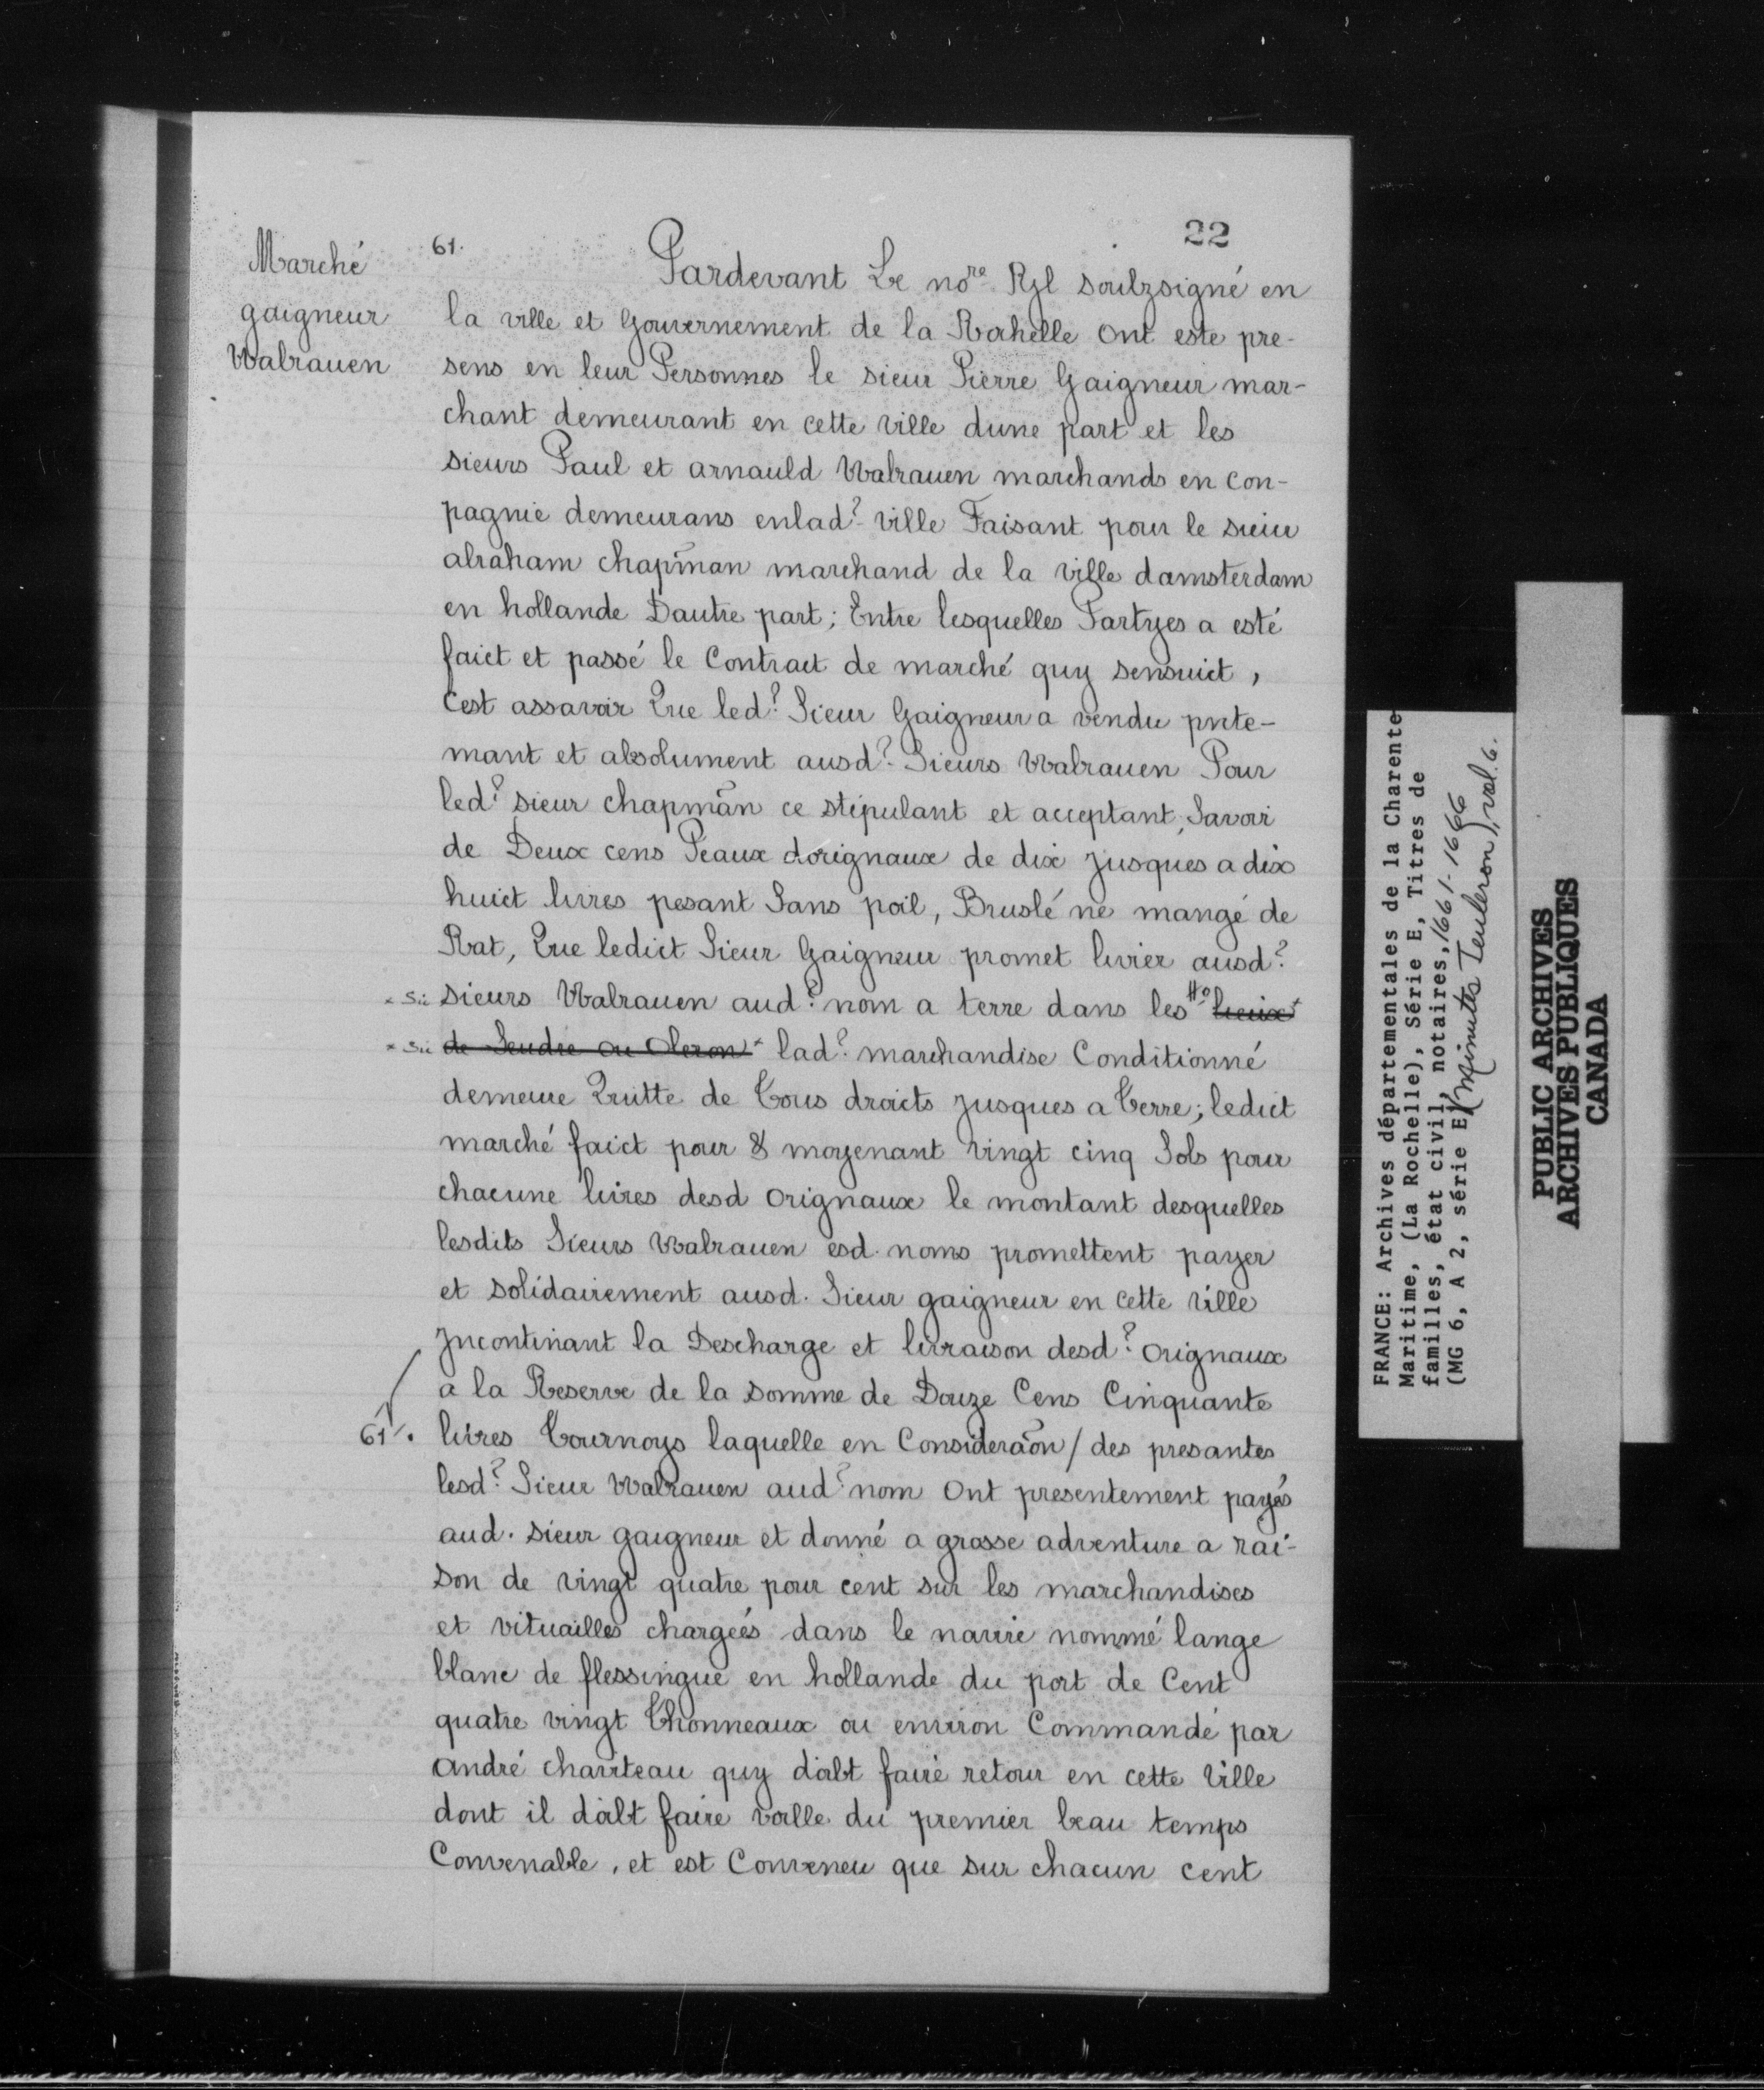 22
61.
Marché
gaigneur
Walrauen
Pardevant Le nore Ryl soubzsigné en
la ville et Gouvernement de la Rochelle ont este pre-
sens en leur Personnes le sieur Pierre Gaigneur mar-
chant demeurant en cette ville dune part et les
sieurs Paul et arnauld Walrauen marchands en con-
pagnie demeurans enlad? ville Faisant pour le sieur
abraham chapman marchand de la ville damsterdam
en hollande Dautre part; Entre lesquelles Partyes a esté
faict et passé le Contract de marché quy sensuict,
Cest assavoir Que led? Sieur Gaigneur a vendu prite-
mant et absolument ausd? Sieurs Walrauen Pour
led? sieur chapmān ce stipulant et acceptant, Savoir
de Deux cens Peaux dorignaux de dix jusques a dix
huict livres pesant Sans poil, Bruslé ne mangé de
Rat, Que ledict Sieur Gaigneur promet livrer ausd?
x Sic sieurs Walrauen aud? nom a terre dans les #o lieux x
x Sic de Seudre ou Oleron x lad? marchandise Conditionné
demeure Quitte de Tous droicts jusques a Terre; ledict
marché faict pour & moyenant vingt cinq Sols pour
chacune livres desd orignaux le montant desquelles
lesdits Sieurs Walrauen esd. noms promettent payer
et solidairement ausd. Sieur gaigneur en cette ville
Jncontinant la Descharge et livraison desd? orignaux
a la Reserve de la somme de Douze Cens Cinquante
61v. livres Tournoys laquelle en Consideraōn / des presantes
lesd? Sieur Walrauen aud? nom ont presentement payés
aud. sieur gaigneur et donné a grosse adventure a rai-
son de vingt quatre pour cent sur les marchandises
et vituailles chargeés dans le navire nommé lange
blanc de flessingue en hollande du port de Cent
quatre vingt Thonneaux ou environ Commandé par
André chaviteau quy doibt faire retour en cette ville
dont il doibt faire voille du premier beau temps
Convenable, et est Conveneu que sur chacun cent
FRANCE: Archives départementales de la Charente
Maritime, (La Rochelle), Série E, Titres de
familles, état civil, notaires, 1661-1666
(MG 6, A 2, série E) (Minutes Teuleron), vol. 6.
PUBLIC ARCHIVES
ARCHIVES PUBLIQUES
CANADA